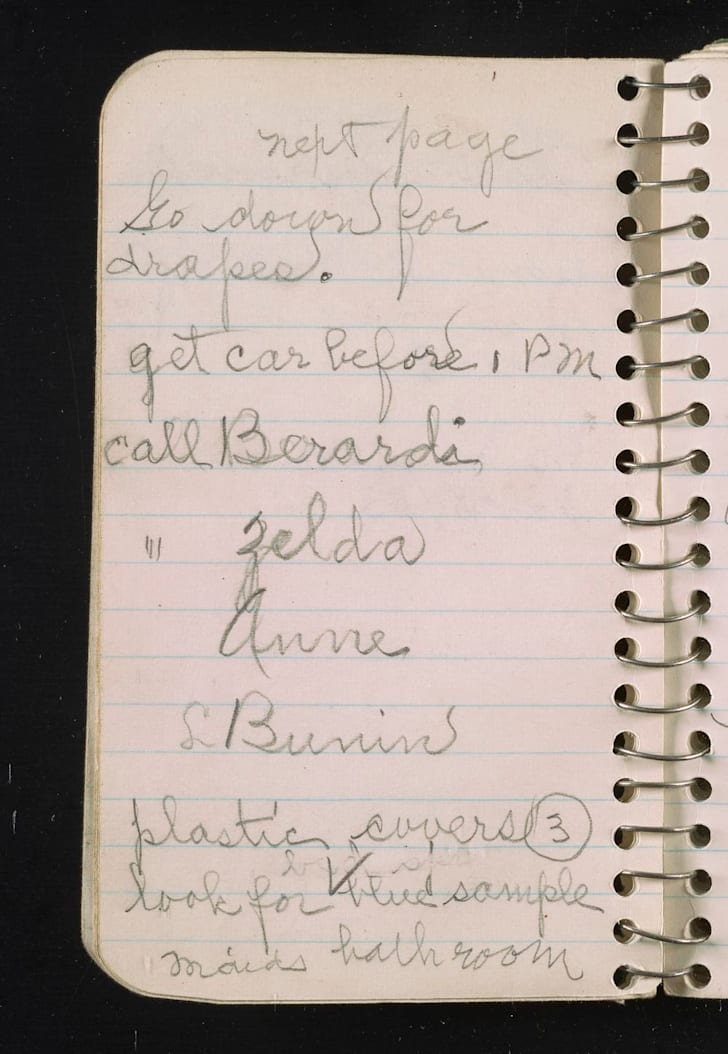 next page
Go down for
drapes.
get car before 1 PM
call Berardi
" Zelda
Anne
L Bunin
plastic covers 3
look for blue sample
maids bathroom